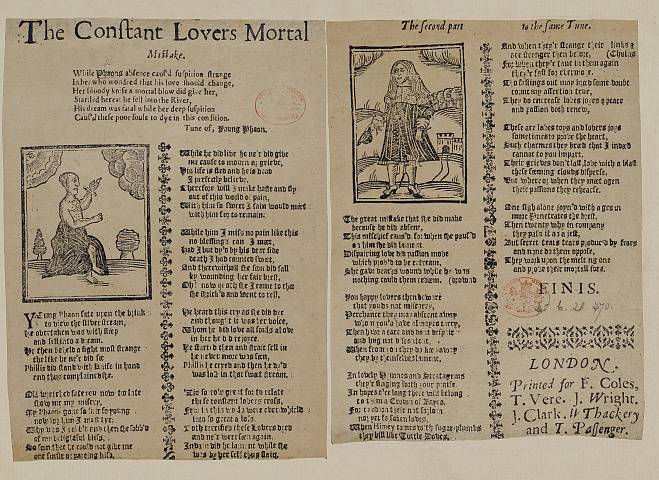 The Constant Lovers Mortal
Mistake.
While Phaons absence caus'd suspition strange
In her who wondred that his love should change,
Her bloody knife a mortal blow did give her,
Startled hereat he fell into the River,
His dream was fatal while her deep suspition
Caus'd these poor souls to dye in this condition.
Tune of, Young Phaon.
YOung Phaon sate upon the brink
to view the silver stream,
He overtaken was with sleep
and fell into a dream.
He then beheld a sight most strange
the like he ne'r did see
Phillis did stand with Knife in hand
and thus complained she.
Old wretched fate you now to late
show me my misery,
My Phaon gone is far so young
now for him I must dye.
Why was I
of my delightful bliss,
So soon that he could not give me
one single or parting kiss.
While he did live he ne'r did give
me cause to mourn or grieve,
His life is fled and he is dead
I perfectly believe.
Therefore will I make haste and fly
out of this world of pain,
With him so sweet I fain would meet
with him for to remain.
While him I miss no pain like this
no blessings can I meet,
Had I but dy'd by his dear side
death I had counted sweet,
And therewithall she soon did fall
by wounding her fair breast,
Oh! now quoth she I come to thee
she shriek'd and went to rest.
He heard this cry as she did dye
and thought it was her voice,
Whom he did love all souls above
in her he did rejoyce.
He started then and strait fell in
he never more was seen,
Phillis he cryed and then he dy'd
was lost in that sweet stream.
'Tis so now great for to relate
the constant lovers cross,
in this world were ever whirld
into so great a loss.
Both wretches these Lovers dyed
and ne'r were seen again.
he did lament while she
was by her self thus slain.
The second part
to the same Tune.
The great mistake that she did make
because he did absent,
This mischief caus'd for when she paus'd
on him she did lament.
Dispairing love did passion move
which prov'd to be extream,
She gave deaths wound while he was
nothing could them redeem. (drown'd
You happy lovers then beware
that you do not mistake,
Perchance they may absent away
who if you have always sorry,
Then have a care and do not despair
and hug not discontent,
When from joys they do
they by themselves lament.
In lovely Hymnes and Stratagems
they'r singing forth your praise.
In hopes e're long there will belong
to them a Crown of Bayes.
For to adorn their not forlorn
nor yet forsaken loves,
When Himey comes with sugar-plumbs
they bill like Turtle Doves.
And when they'r strange their links
are stronger then before,
For when they'r caue in them again
they'r fast for evermore.
Tho fallings out may lead some doubt
count my assertion true,
They do encrease loves joyes & peace
and passion doth renew.
These are loves toys and lovers joys
sometimes to prove the heart,
Such charmes they bread that I indeed
cannot to you impart.
Their griefs don't last, love with a blast
these seeming clouds disperse,
But where or when they meet agen
their passions they rehearse.
One sigh alone joyn'd with a groan
more penetrates the best,
Then twenty why in company
they pass it as a jest,
But secret tears produc'd by fears
and none do them oppose,
They work upon the melting one
and prove their mortal foes.
FINIS.
LONDON.
Printed for F. Coles,
T. Vere. J. Wright.
J. Clark. W Thackery
and T. Passenger.